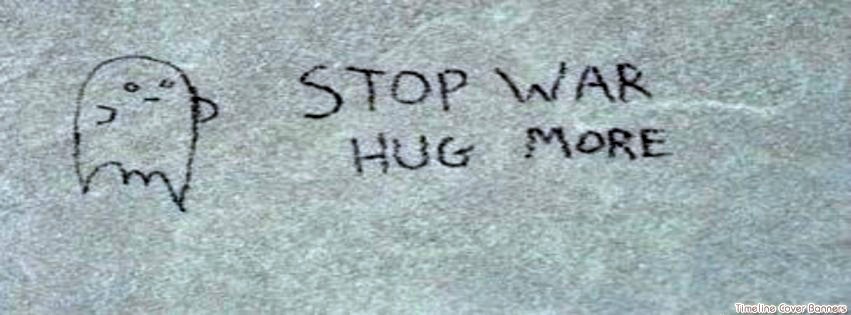 STOP WAR
HUG MORE
Timeline Cover Banners